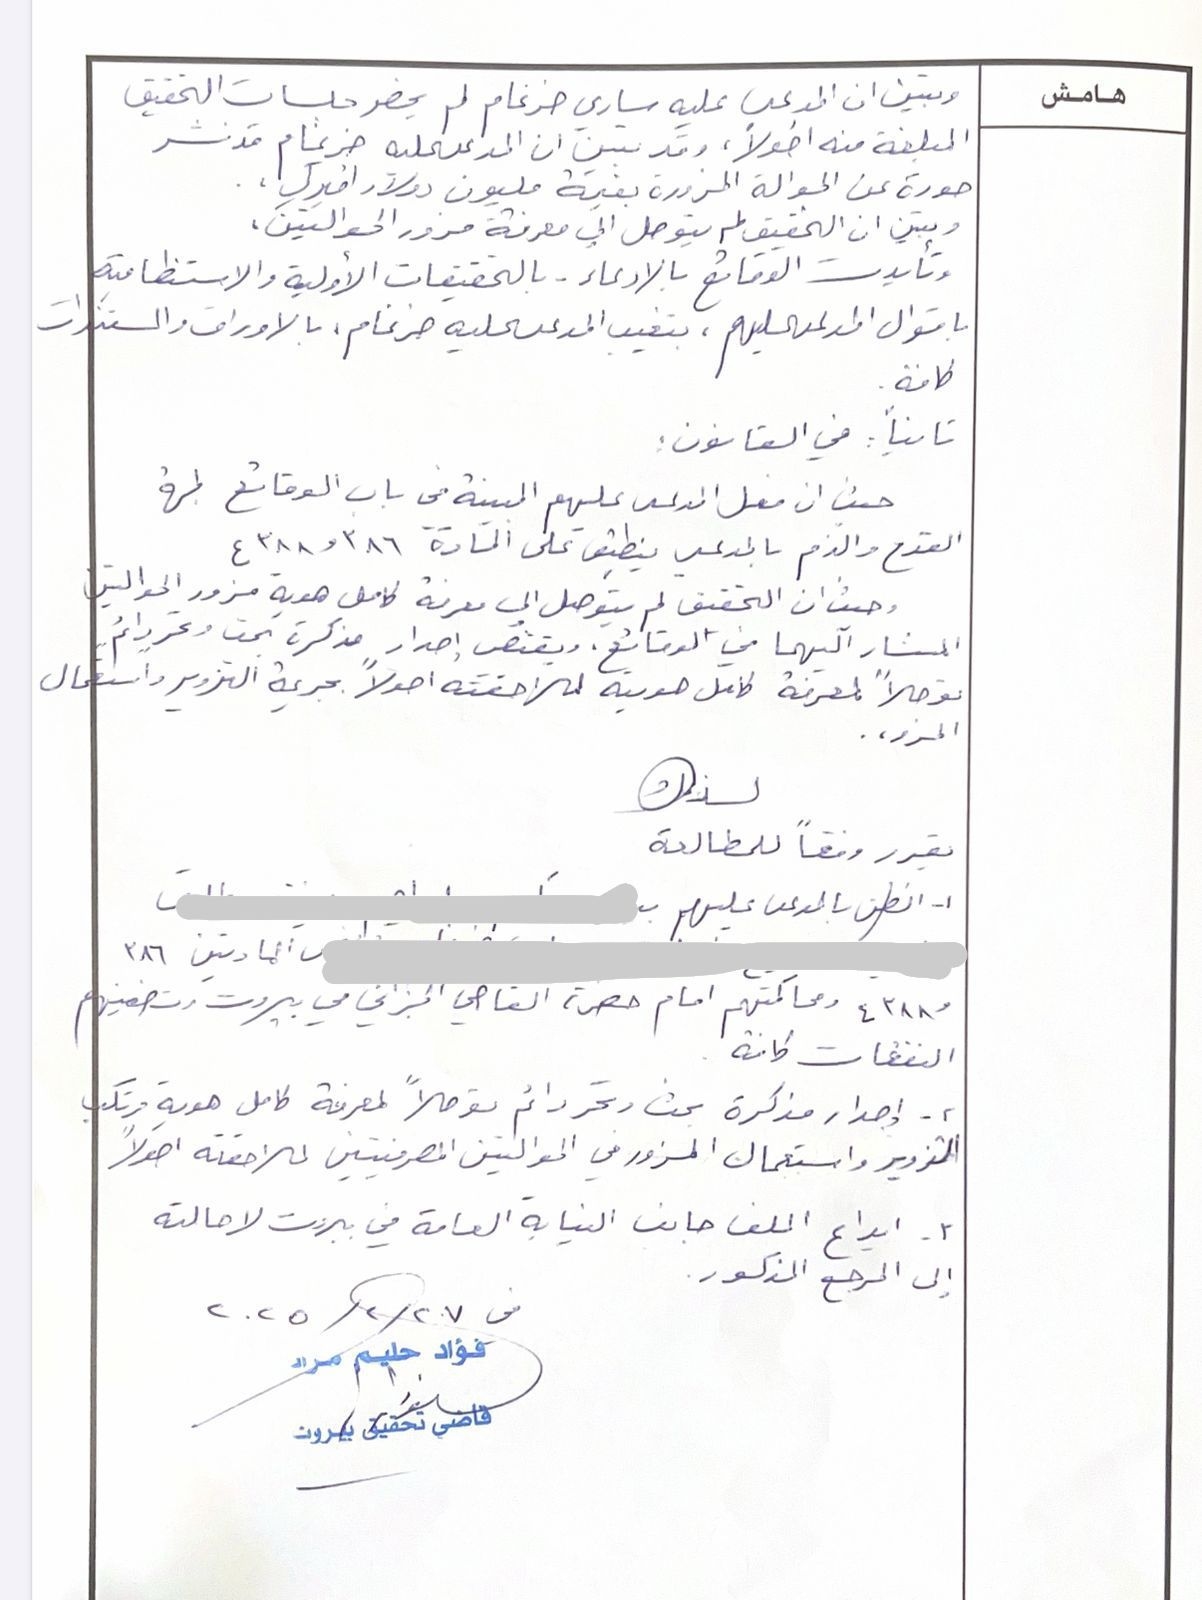 هامش
وتبين ان المدعى عليه ساري ضرغام لم يحضر جلسات التحقيق
المبلغة منه اصولاً، وقد تبين ان المدعى عليه ضرغام قد نشر
صورة عن الحوالة المزورة بقيمة مليون دولار اميركي،.
وتبين ان التحقيق لم يتوصل الى معرفة مزور الحوالتين،
وتأيدت الوقائع بالادعاء - بالتحقيقات الأولية والاستنطاقية
باقوال المدعى عليهم، بتغيب المدعى عليه ضرغام، بالاوراق والمستندات
كافة.
ثانياً: في القانون:
حيث ان فعل المدعى عليهم المبينة في باب الوقائع لجهة
القدح والذم بالمدعي ينطبق على المادة ٣٨٦ و ٣٨٨ ع
وحيث ان التحقيق لم يتوصل الى معرفة كامل هوية مزور الحوالتين
المشار اليهما في الوقائع، ويقتضي إصدار مذكرة بحث وتحر دائم
توصلاً لمعرفة كامل هويته لملاحقته اصولاً بجريمة التزوير واستعمال
المزور،.
لذلك
نقرر وفقاً للمطالعة
١- الظن بالمدعى عليهم
المادتين ٣٨٦
و ٣٨٨ ع ومحاكمتهم امام حضرة القاضي الجزائي في بيروت وتضمينهم
النفقات كافة.
٢- إصدار مذكرة بحث وتحر دائم توصلاً لمعرفة كامل هوية مرتكب
التزوير واستعمال المزور في الحوالتين المصرفيتين لملاحقته اصولاً
٣- ايداع الملف جانب النيابة العامة في بيروت لاحالته
إلى المرجع المذكور.
في ٢٠٢٥/٢/٢٠٧
فؤاد حليم مراد
قاضي تحقيق بيروت